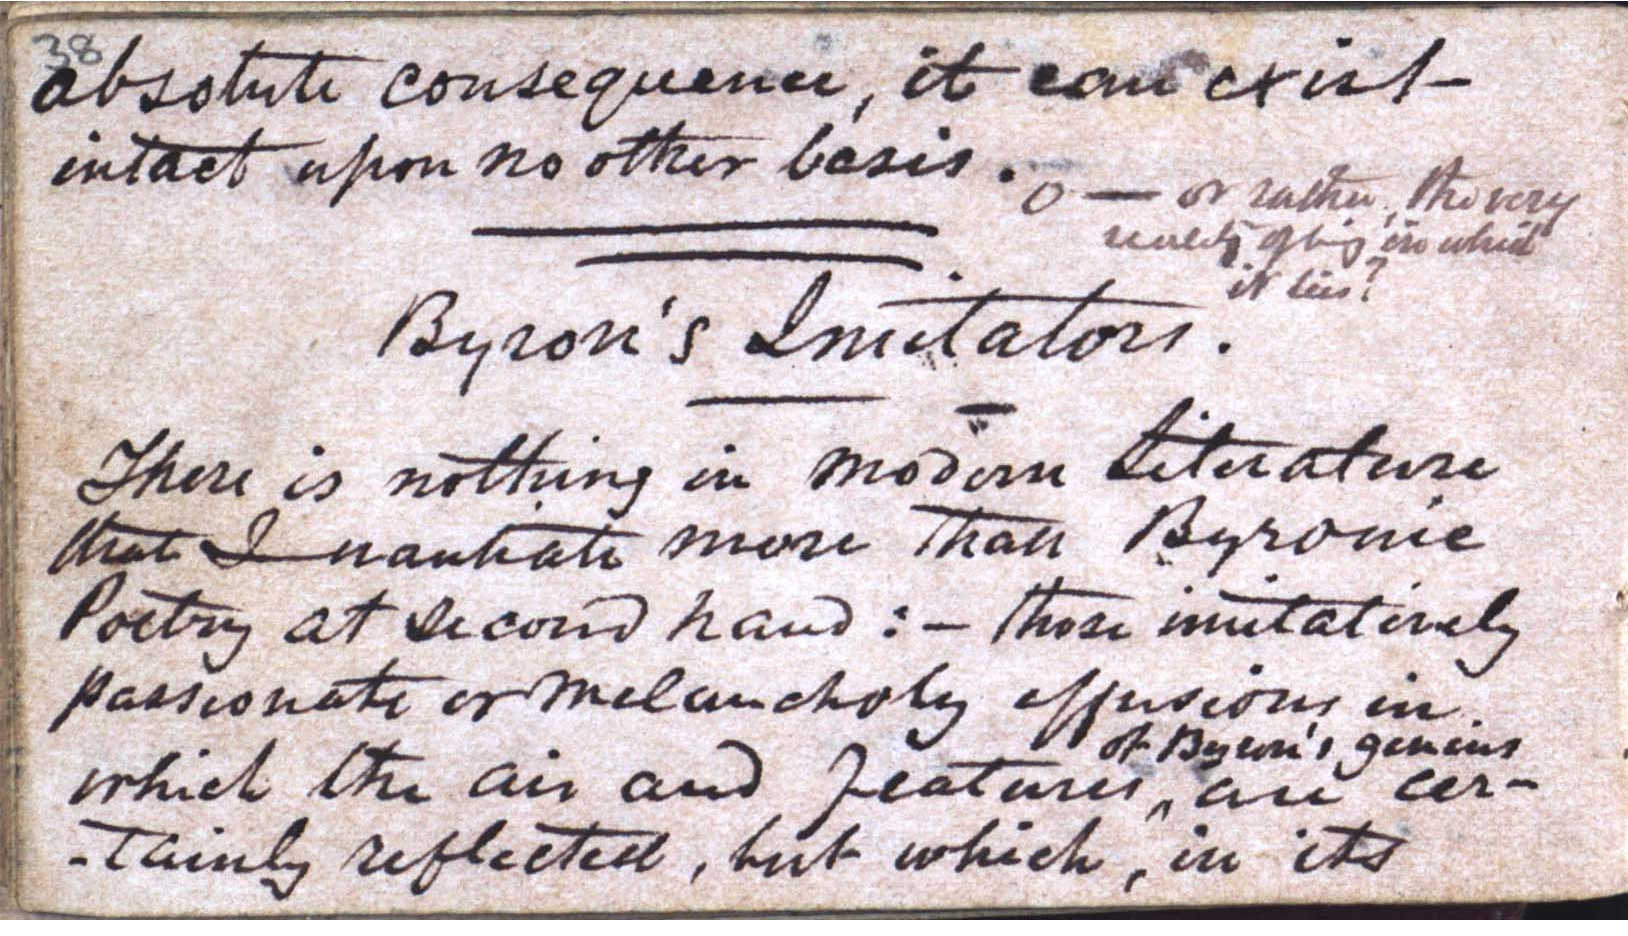 38
absolute consequence, it can exist
intact upon no other basis.
O — or rather, the very
in which
it lies?
Byron's Imitators.
There is nothing in modern Literature
that I nautiate more than Byronic
Poetry at second hand: — those imitatively
passionate or melancholy effusions in
of Byron's genius
which the air and features ^ are cer-
-tainly reflected, but which, in its